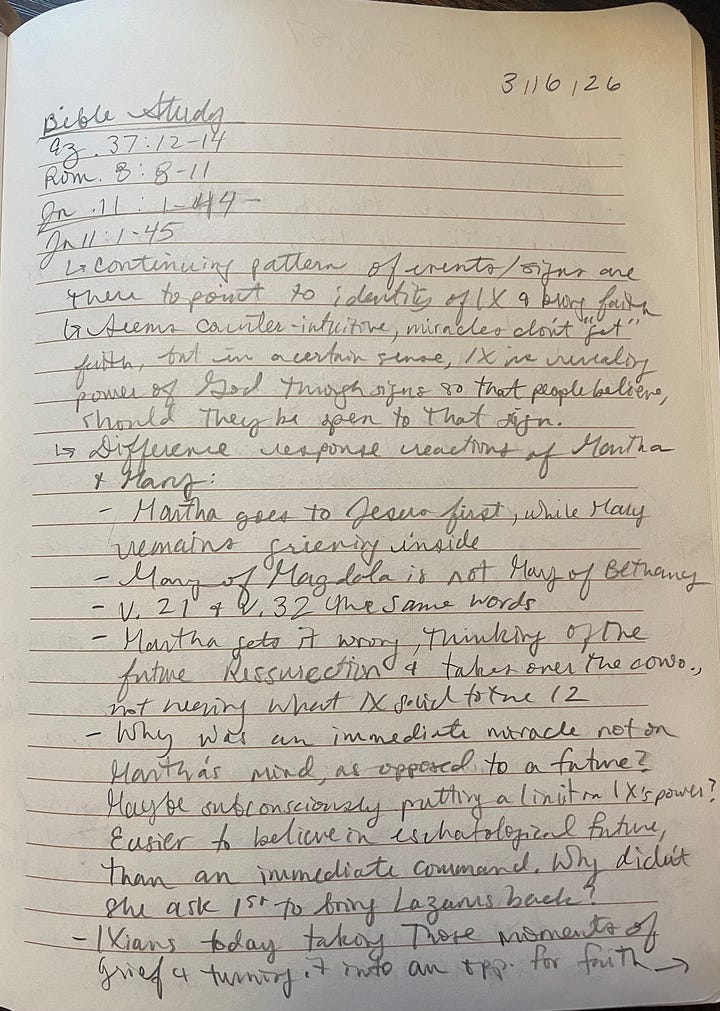 3/16/26
Bible Study
Ez. 37:12-14
Rom. 8:8-11
Jn. 11:1-44-
Jn 11:1-45
↳ Continuing pattern of events/signs are
there to point to identity of IX & bring faith
↳ Seems counter-intuitive, miracles don't "get"
faith, but in a certain sense, IX is revealing
power of God through signs so that people believe,
should they be open to that sign.
↳ Difference response reactions of Martha
& Mary:
- Martha goes to Jesus first, while Mary
remains grieving inside
- Mary of Magdala is not Mary of Bethany
- V. 21 & V. 32 the same words
- Martha gets it wrong, thinking of the
future Ressurection & takes over the convo.,
not hearing what IX said to the 12
- Why was an immediate miracle not on
Martha's mind, as opposed to a future?
Maybe subconsciously putting a limit on IX's power?
Easier to believe in eschatological future,
than an immediate command. Why didn't
she ask 1st to bring Lazarus back?
- IXians today taking those moments of
grief & turning it into an opp. for faith →